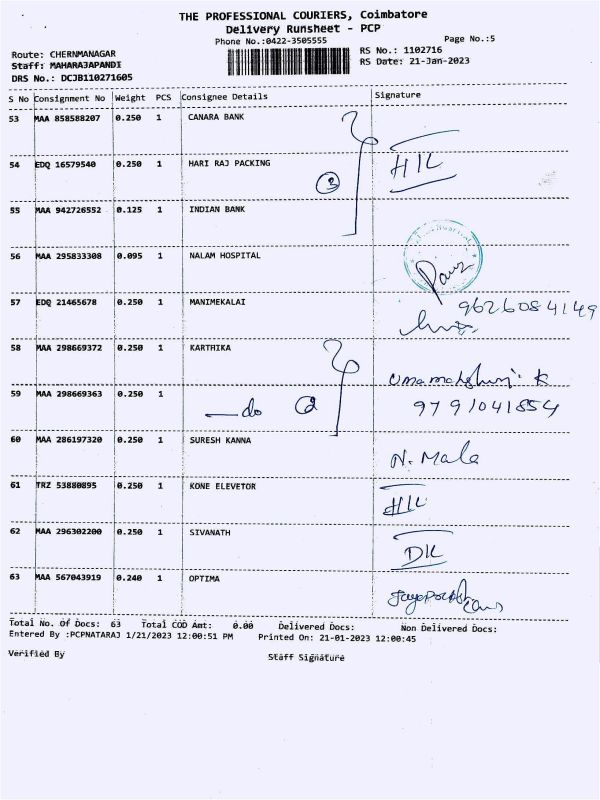 THE PROFESSIONAL COURIERS, Coimbatore
Delivery Runsheet - PCP
Phone No.:0422-3505555
Page No.:5
Route: CHERNMANAGAR
Staff: MAHARAJAPANDI
DRS No.: DCJB110271605
RS No.: 1102716
RS Date: 21-Jan-2023
S No Consignment No Weight PCS Consignee Details Signature
53 MAA 858588207 0.250 1 CANARA BANK
54 EDQ 16579540 0.250 1 HARI RAJ PACKING 3
55 MAA 942726552 0.125 1 INDIAN BANK
56 MAA 295833308 0.095 1 NALAM HOSPITAL
57 EDQ 21465678 0.250 1 MANIMEKALAI 9626084149
58 MAA 298669372 0.250 1 KARTHIKA
59 MAA 298669363 0.250 1 do 2 9791041854
60 MAA 286197320 0.250 1 SURESH KANNA N. Mala
61 TRZ 53880895 0.250 1 KONE ELEVETOR
62 MAA 296302200 0.250 1 SIVANATH
63 MAA 567043919 0.240 1 OPTIMA
Total No. Of Docs: 63 Total COD Amt: 0.00 Delivered Docs: Non Delivered Docs:
Entered By :PCPNATARAJ 1/21/2023 12:00:51 PM Printed On: 21-01-2023 12:00:45
Verified By Staff Signature